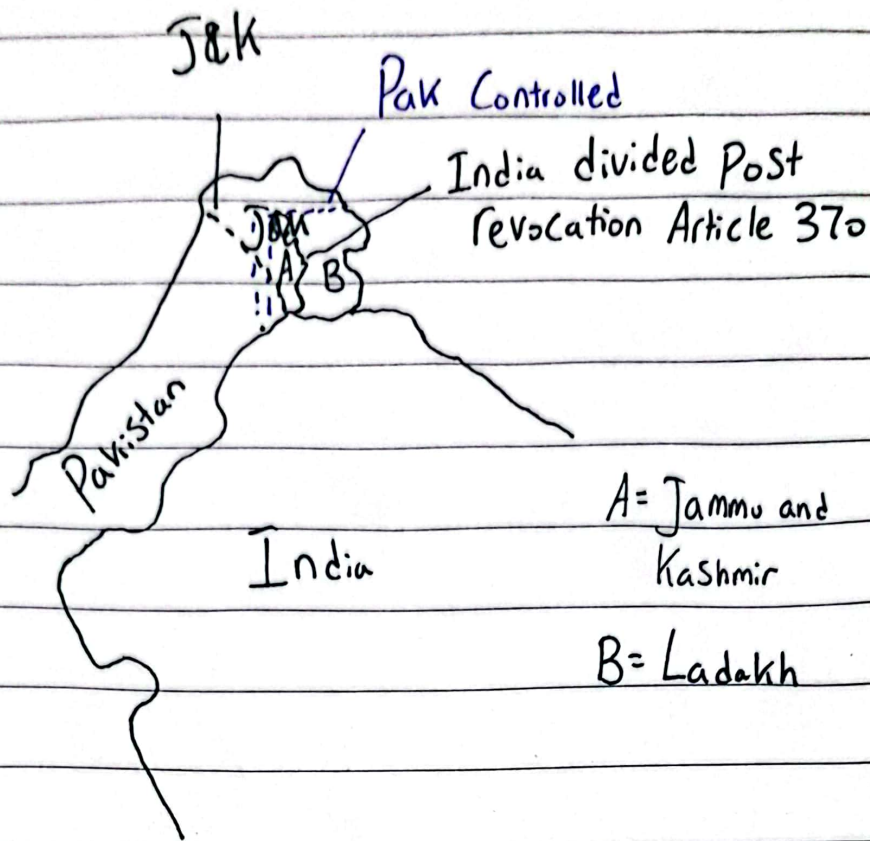 J&K
Pak Controlled
India divided Post
revocation Article 370
A
B
Pakistan
India
A= Jammu and
Kashmir
B= Ladakh